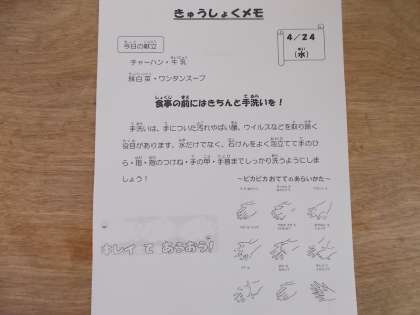 きゅうしょくメモ
4/24
(水)
今日の献立
チャーハン・牛乳
辣白菜・ワンタンスープ
食事の前にはきちんと手洗いを！
手洗いは、手についた汚れやばい菌、ウイルスなどを取り除く
役目があります。水だけでなく、石けんをよく泡立てて手のひ
ら・指・指のつけね・手の甲・手首までしっかり洗うようにしま
しょう！
～ピカピカおててのあらいかた～
キレイ で あらおう！